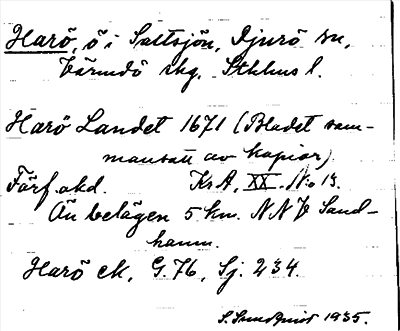 Harö, ö i Saltsjön, Djurö sn,
Värmdö skg. Sthlms l.
Harö Landet 1671 (Bladet sam-
mansatt av kopior)
Förf. okd. KrA, XX. No 13.
Ön belägen 5 km. NNV Sand-
hamn.
Harö ek, G. 76, Sj. 234.
S. Sundquist 1935.